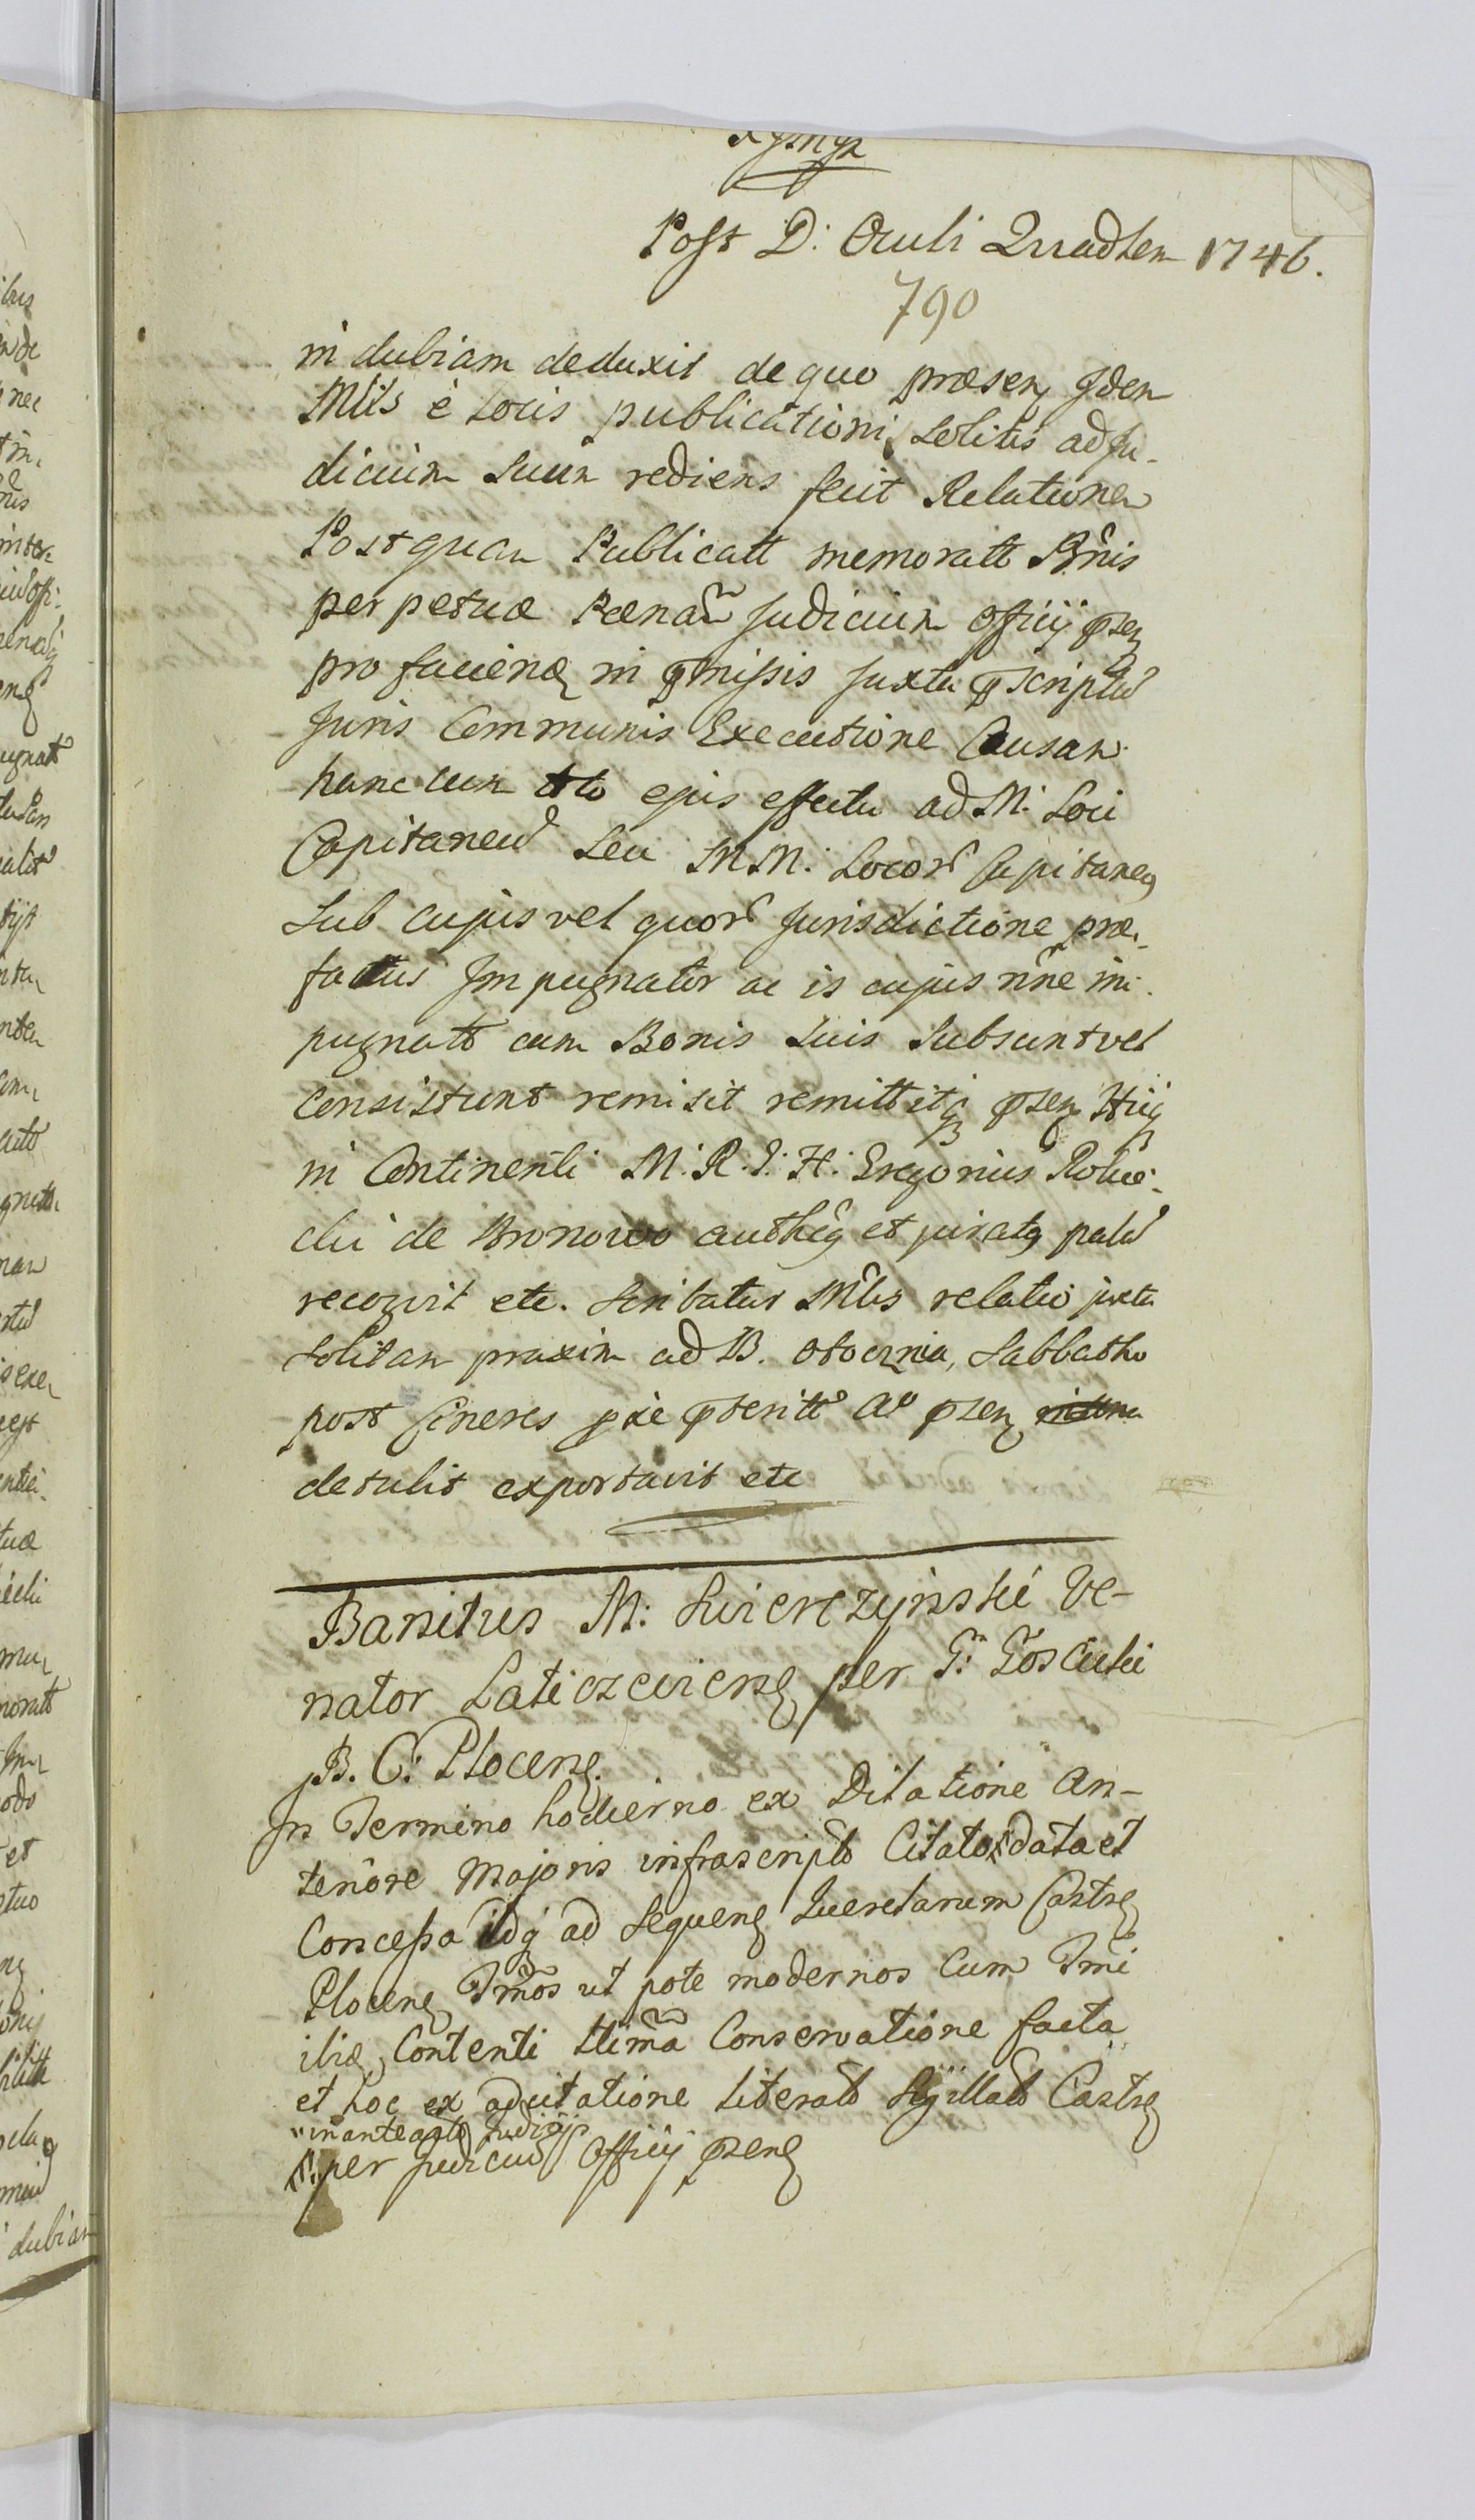 Post D: Oculi Quadlem 1746.
790
in dubiam deduxit de quo præsen Jdem
Mlts è Locis publicationi solitis ad Ju-
dicium suum rediens fecit Relationem
Postquam Publicatt memoratt Bnis
perpetuæ Pænar Judicium Officij psen
pro faciend in pmissis juxta pscriptu
Juris Communis Executione Causam
hanc cum tto ejus effectu ad M: Loci
Capitaneu seu MM: Locor Capitaneos
sub cujus vel quor Jurisdictione præ-
fatus Impugnator ac is cujus nne im-
pugnatt cum Bonis suis subsunt vel
consistunt remisit remittitq psen
in Continenti M. R. J. H: Gregorius
de Bronowo authen et jurat palu
recogvit etc. Scribatur Mlis relatio juxta
solitam praxim ad B. Otocznia, Sabbatho
post Cineres pxie pteritt Ao psen
detulit exportavit etc
Banitus M: Swierczynski Ve-
nator Laticzeviens per G: Gosciski
B. C: Plocens.
Jn Termino hodierno ex Dilatione An-
tenôre Majoris infrascript Citato data et
Concessa idq ad sequens Querelarum Castre
Plocens Tmos ut pote modernos Cum Tmi
iliq Contenti ttima Conservatione facta
et hoc ex adcitatione Literatt Sigillatt Castre
in anteactt Judicijs
per Judiciu Officij psens